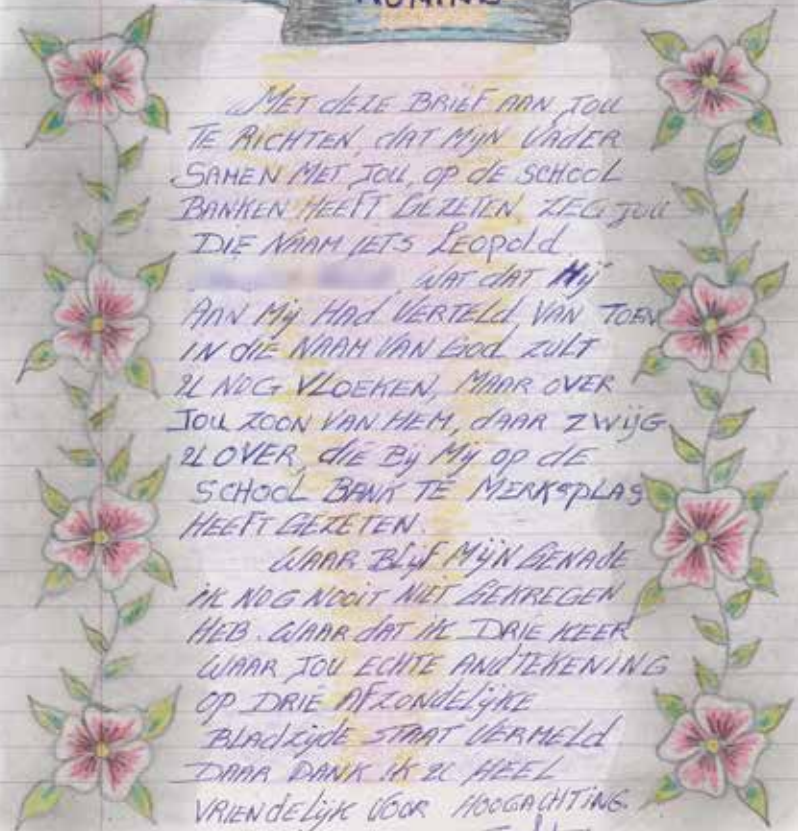 KONING
MET dEZE BRIEF AAN JOU
TE RICHTEN, dAT MijN VAdER
SAMEN MET JOU, OP dE SCHOOL
BANKEN HEEFT GEZETEN ZEG JOU
DIE NAAM IETS Leopold
WAT dAT Hij
AAN Mij HAd VERTELd, VAN TOEN
IN diE NAAM VAN God ZULT
U NOG VLOEKEN, MAAR OVER
JOU ZOON VAN HEM, dAAR ZWijG
U OVER, diE Bij Mij OP dE
SCHOOL BANK TE MERKSPLAS
HEEFT GEZETEN.
WAAR BLijF MijN GENAdE
iK NOG NOOiT NiET GEKREGEN
HEB. WAAR dAT iK DRIE KEER
WAAR JOU ECHTE ANdTEKENING
OP DRIE AFZONdELijKE
BLAdZijdE STAAT VERMELd
DAAR DANK iK U HEEL
VRIENdELijK VOOR HOOGACHTING.